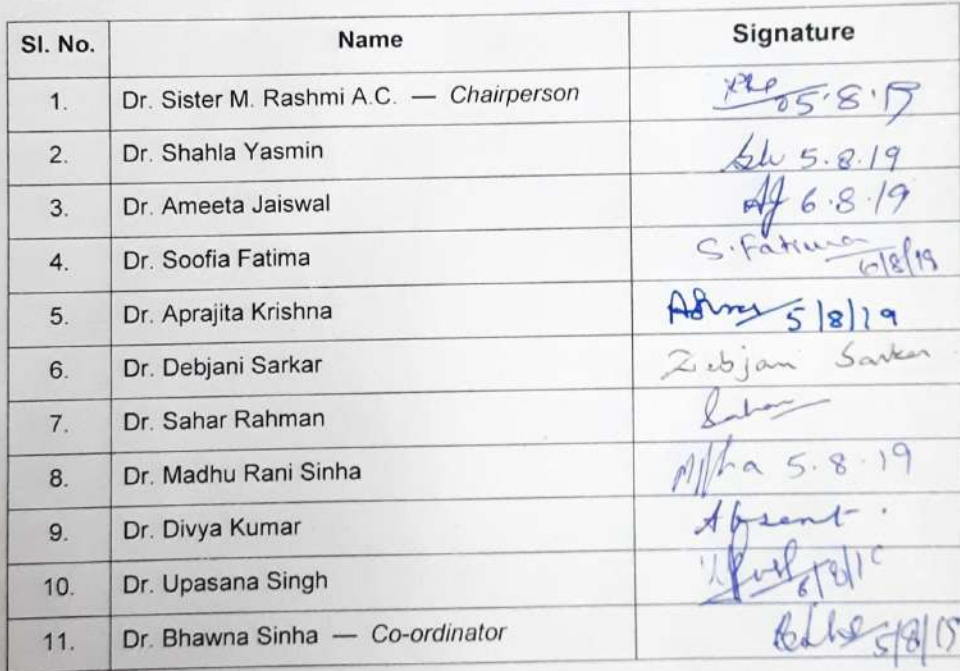 Sl. No. Name Signature
1. Dr. Sister M. Rashmi A.C. — Chairperson 05.8.19
2. Dr. Shahla Yasmin 5.8.19
3. Dr. Ameeta Jaiswal AJ 6.8.19
4. Dr. Soofia Fatima S. Fatima 6/8/19
5. Dr. Aprajita Krishna 5/8/19
6. Dr. Debjani Sarkar Debjani Sarkar
7. Dr. Sahar Rahman Sahar
8. Dr. Madhu Rani Sinha 5.8.19
9. Dr. Divya Kumar Absent.
10. Dr. Upasana Singh 6/8/19
11. Dr. Bhawna Sinha — Co-ordinator 5/8/19